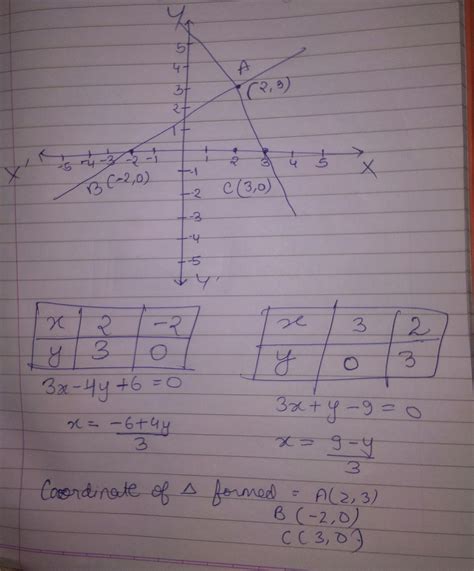 Y
5
4
A
3
(2,3)
2
1
X' -5 -4 -3 -2 -1 1 2 3 4 5 X
B (-2,0)
C (3,0)
-1
-2
-3
-4
-5
Y'
x 2 -2
y 3 0
x 3 2
y 0 3
3x-4y+6=0
3x+y-9=0
x = -6+4y
3
x = 9-y
3
Coordinate of △ formed = A(2,3)
B(-2,0)
C(3,0)